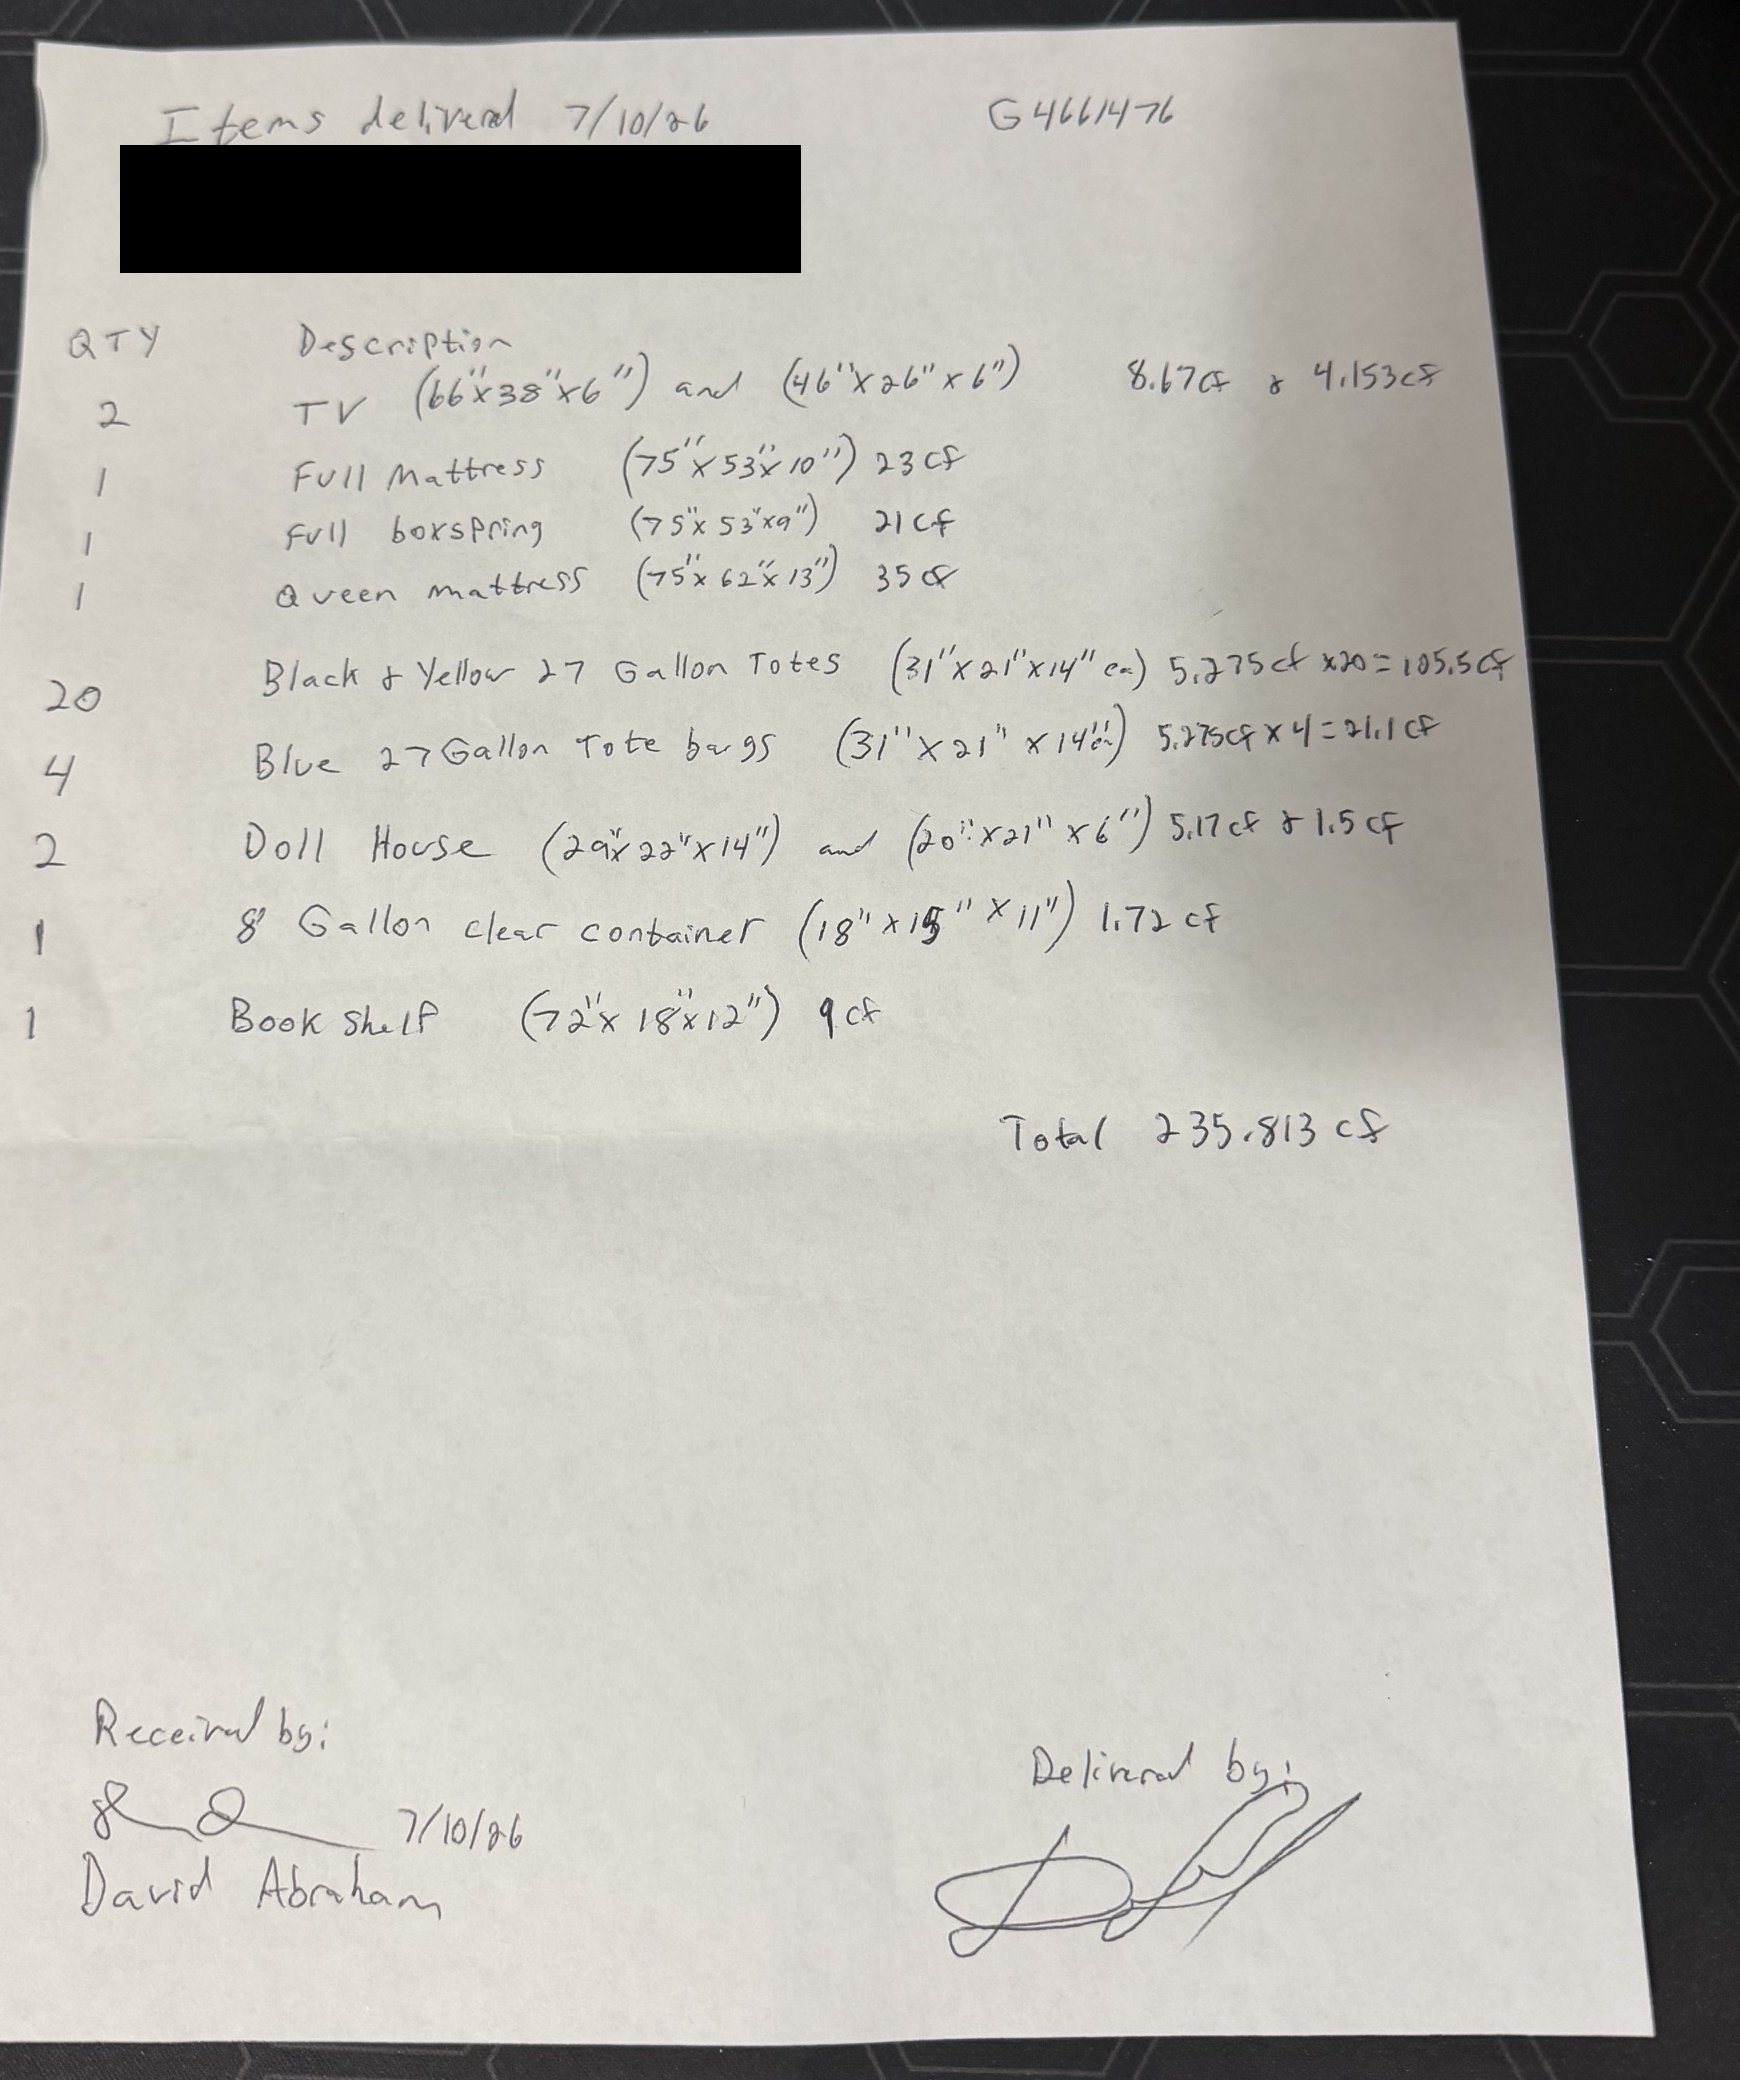 Items delivered 7/10/26 G4661476
QTY Description
2 TV (66"x38"x6") and (46"x26"x6") 8.67cf & 4.153cf
1 Full Mattress (75"x53"x10") 23cf
1 Full boxspring (75"x53"x9") 21cf
1 Queen mattress (75"x62"x13") 35cf
20 Black & Yellow 27 Gallon Totes (31"x21"x14" ea) 5.275cf x20=105.5cf
4 Blue 27 Gallon Tote bags (31"x21"x14"ea) 5.275cf x 4=21.1cf
2 Doll House (29"x22"x14") and (20"x21"x6") 5.17cf & 1.5cf
1 8 Gallon clear container (18"x15"x11") 1.72 cf
1 Book Shelf (72"x18"x12") 9cf
Total 235.813 cf
Received by:
Delivered by:
7/10/26
David Abraham